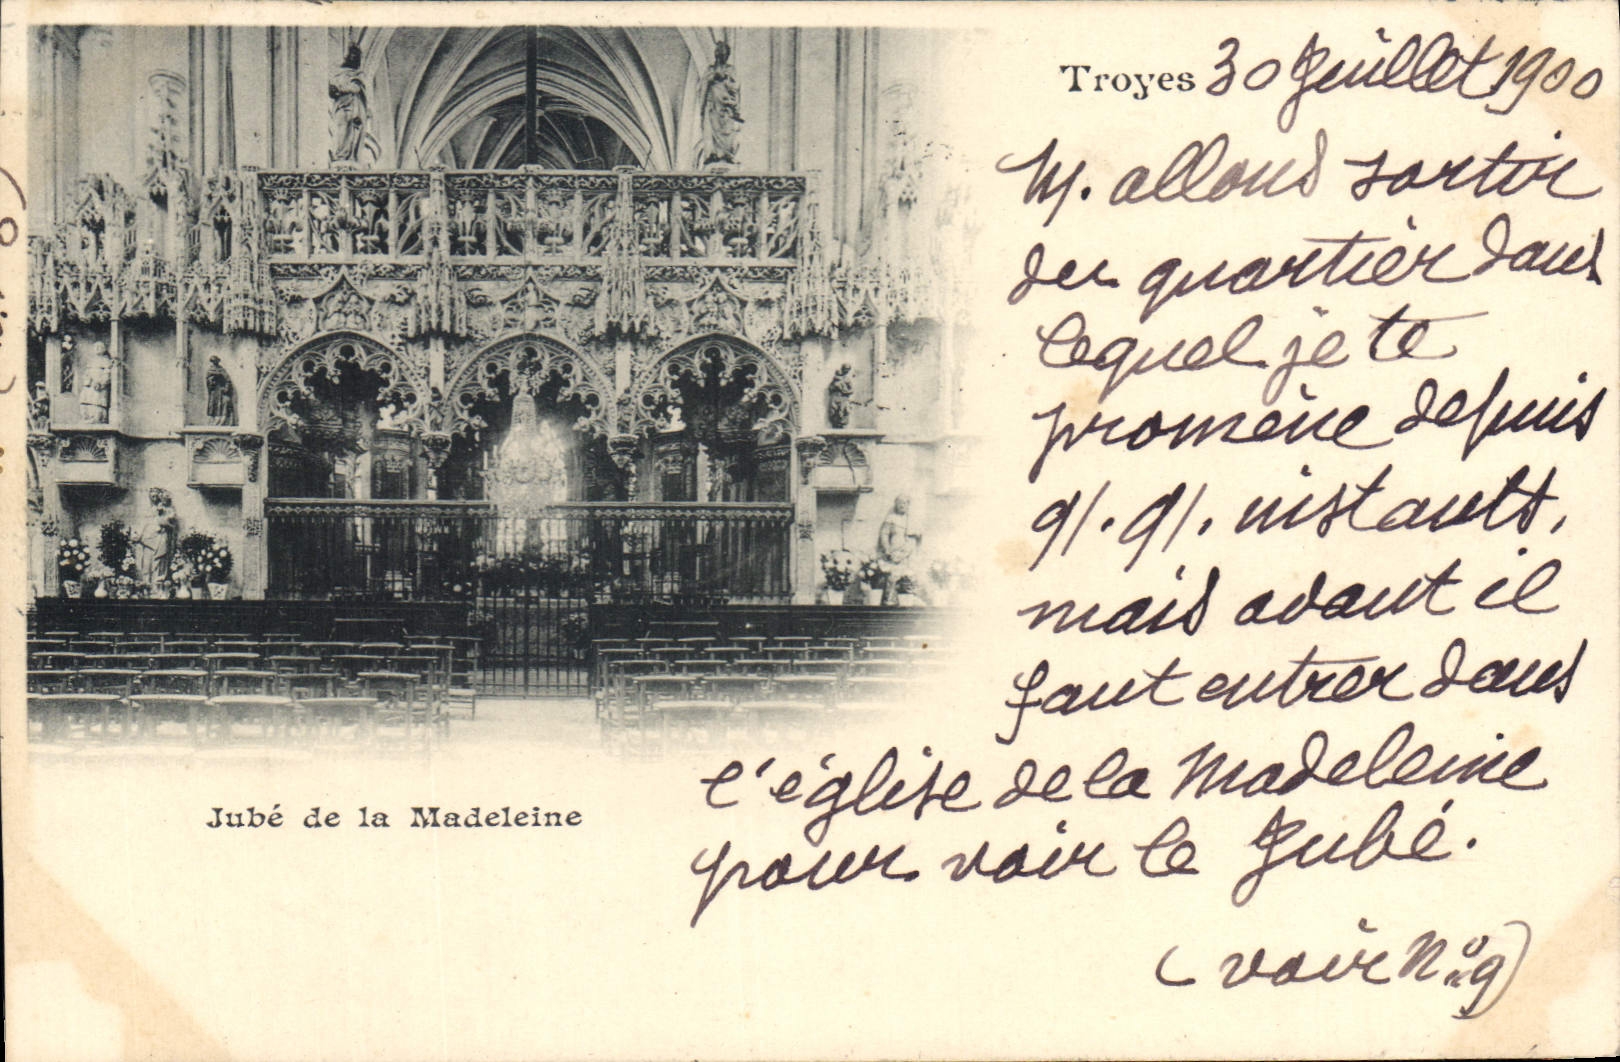 Troyes 30 Juillet 1900
N. allons sortir
du quartier dans
lequel je te
promène depuis
q/. q/. instants,
mais avant il
faut entrer dans
l'église de la Madeleine
pour voir le Jubé.
(voir N° 9)
Jubé de la Madeleine